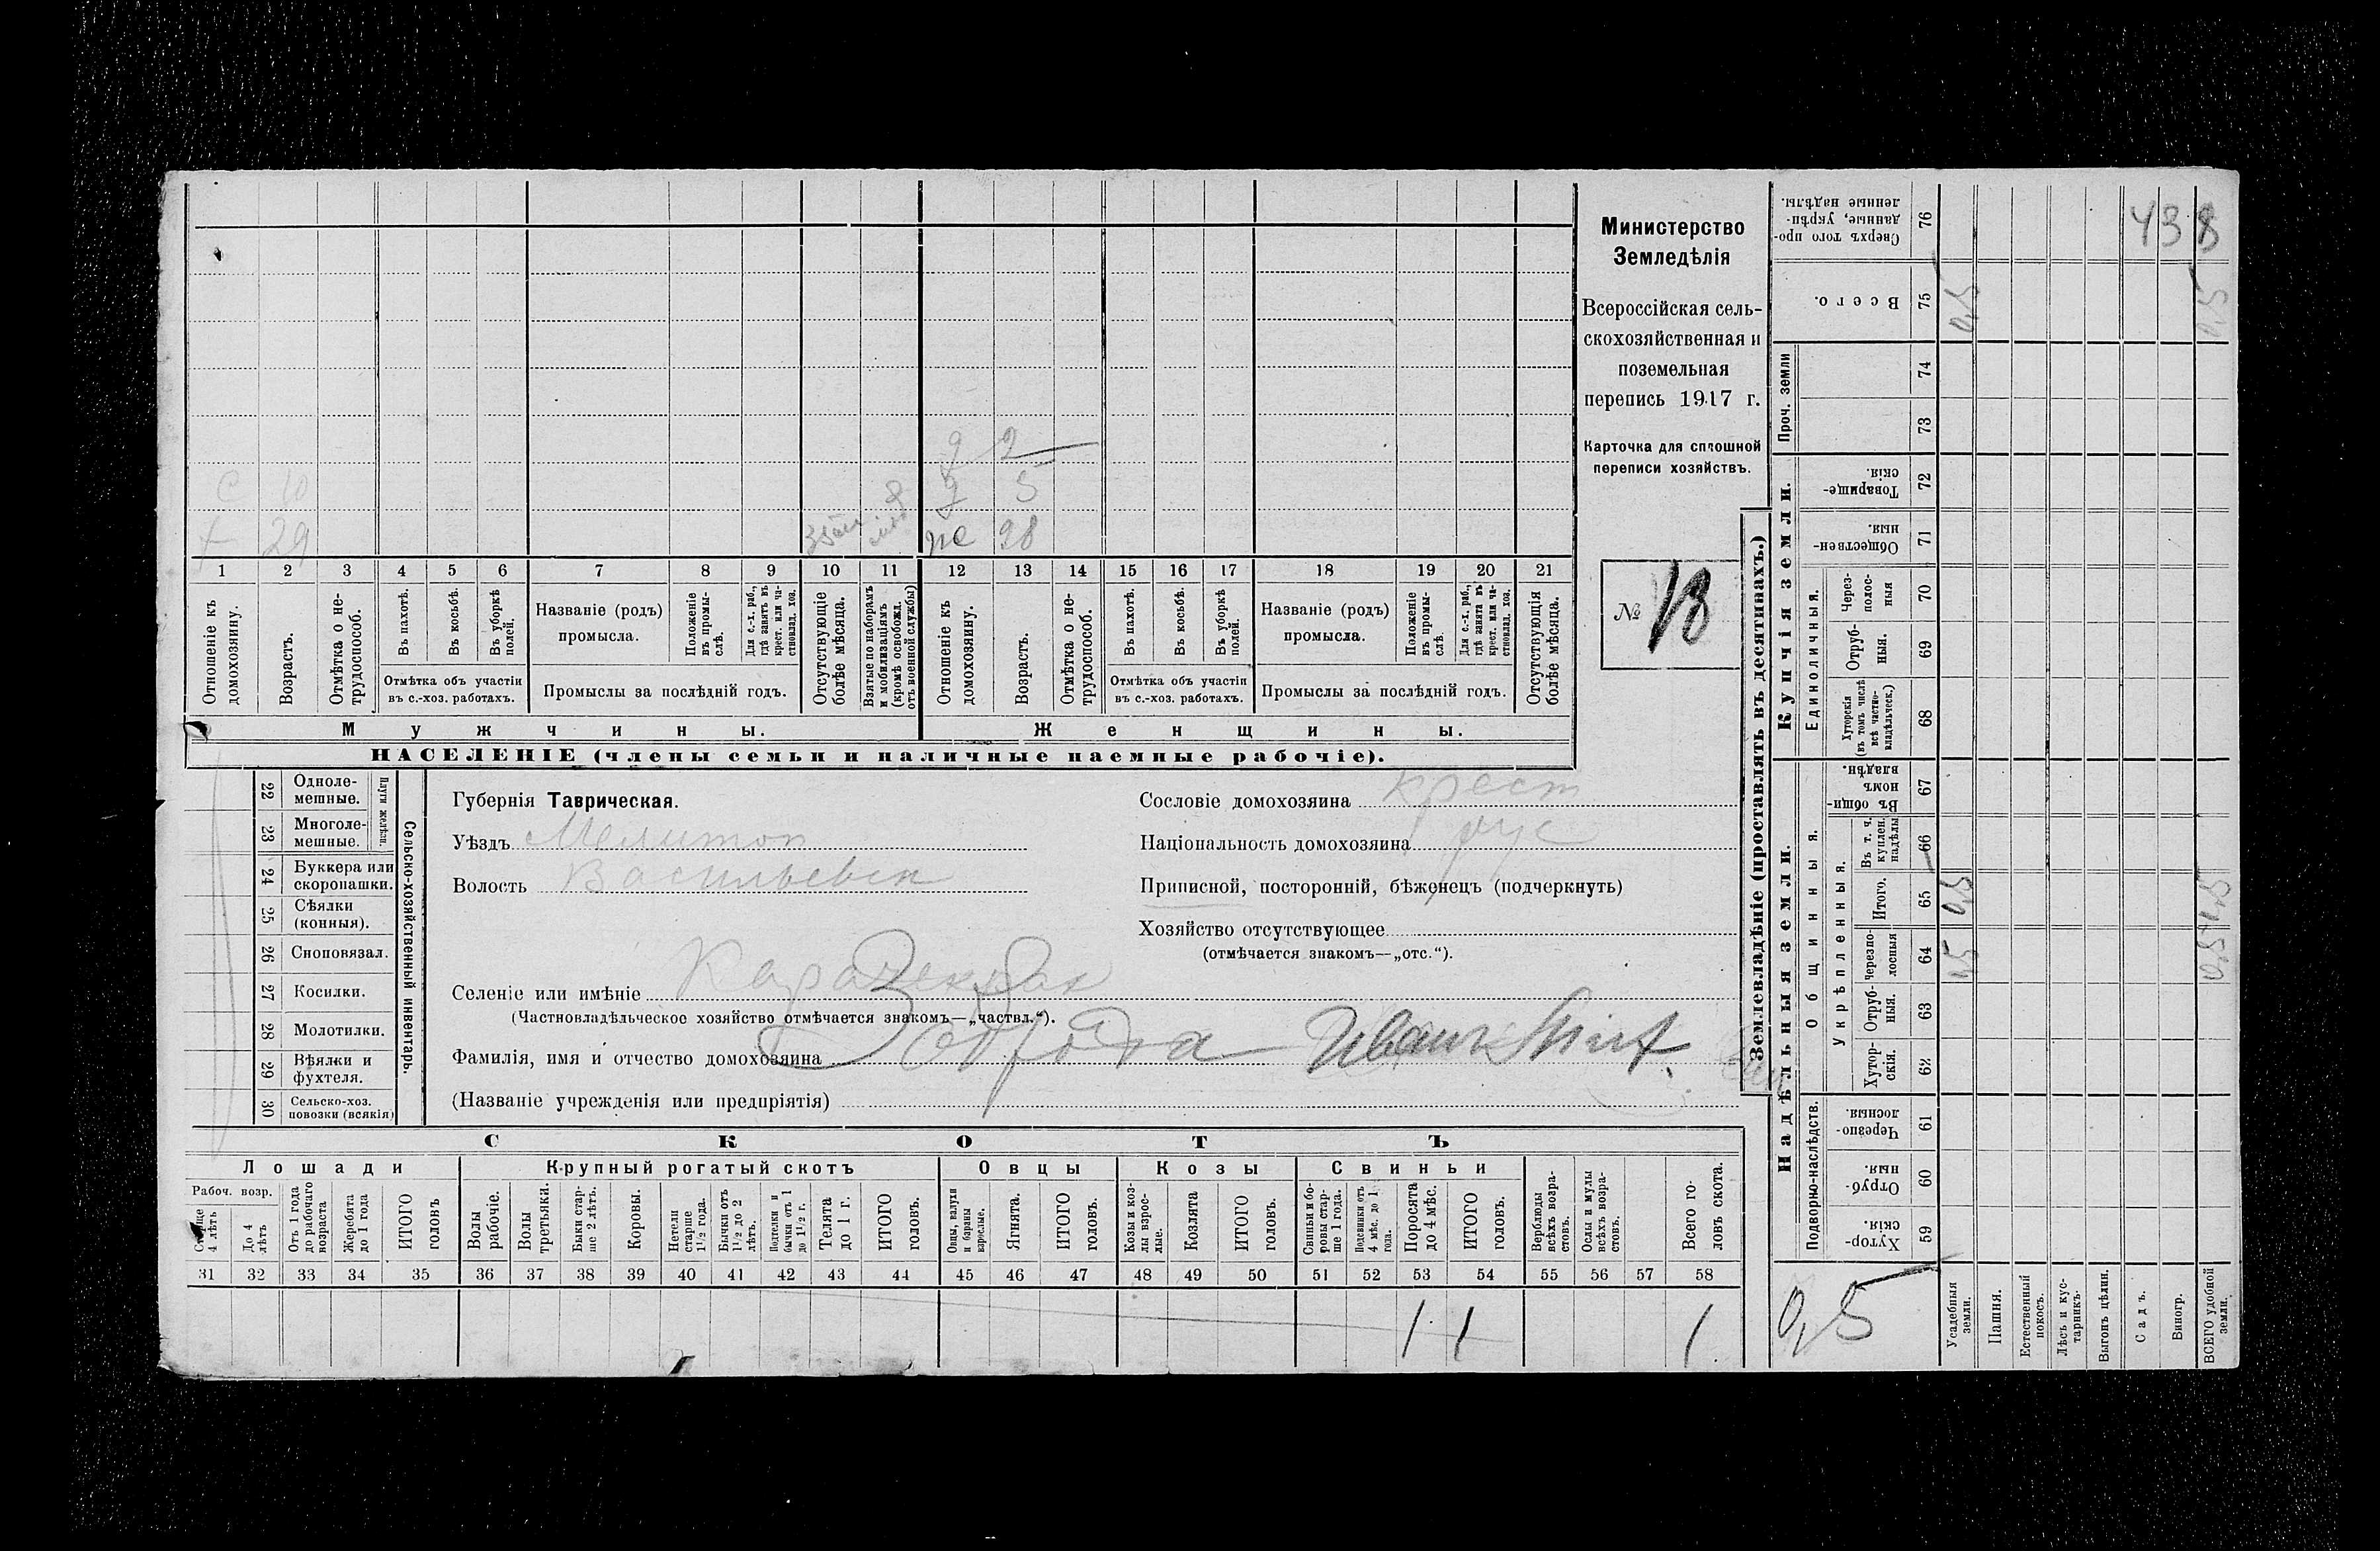 Министерство
Земледѣлія
Всероссійская сель-
скохозяйственная и
поземельная
перепись 1917 г.
Карточка для сплошной
переписи хозяйствъ.
№ 13
д 2
с 10 д 5
29 же 28
1 2 3 4 5 6 7 8 9 10 11 12 13 14 15 16 17 18 19 20 21
Отношеніе къ домохозяину.
Возрастъ.
Отмѣтка о не-трудоспособ.
Въ пахотѣ.
Въ косьбѣ.
Въ уборкѣ полей.
Отмѣтка объ участіи
въ с.-хоз. работахъ.
Названіе (родъ)
промысла.
Положеніе въ промы-слѣ.
Для с.-х. раб., гдѣ занятъ въ крест. или ча-стновлад. хоз.
Промыслы за послѣдній годъ.
Отсутствующіе болѣе мѣсяца.
Взятые по наборамъ и мобилизаціямъ (кромѣ освобожд. отъ военной службы)
Отношеніе къ домохозяину.
Возрастъ.
Отмѣтка о не-трудоспособ.
Въ пахотѣ.
Въ косьбѣ.
Въ уборкѣ полей.
Отмѣтка объ участіи
въ с.-хоз. работахъ.
Названіе (родъ)
промысла.
Положеніе въ промы-слѣ.
Для с.-х. раб., гдѣ занята въ крест. или ча-стновлад. хоз.
Промыслы за послѣдній годъ.
Отсутствующія болѣе мѣсяца.
Мужчины.
Женщины.
НАСЕЛЕНІЕ (члены семьи и наличные наемные рабочіе).
22 Одноле-мешные.
23 Многоле-мешные.
Плуги желѣзн.
24 Буккера или скоропашки.
25 Сѣялки (конныя).
26 Сноповязал.
27 Косилки.
28 Молотилки.
29 Вѣялки и фухтеля.
30 Сельско-хоз. повозки (всякія)
Сельско-хозяйственный инвентарь.
Губернія Таврическая.
Уѣздъ Мелитоп
Волость Васильевск
Селеніе или имѣніе
(Частновладѣльческое хозяйство отмѣчается знакомъ—„частвл.“).
Фамилія, имя и отчество домохозяина
(Названіе учрежденія или предпріятія)
Сословіе домохозяина крест
Національность домохозяина рус
Приписной, посторонній, бѣженецъ (подчеркнуть)
Хозяйство отсутствующее
(отмѣчается знакомъ—„отс.“).
СКОТЪ
Лошади
Крупный рогатый скотъ
Овцы
Козы
Свиньи
Рабоч. возр.
Старше 4 лѣтъ
До 4 лѣтъ
Отъ 1 года до рабочаго возраста
Жеребята до 1 года
ИТОГО головъ
Волы рабочіе.
Волы третьяки.
Быки стар-ше 2 лѣтъ.
Коровы.
Нетели старше 1 1/2 года.
Бычки отъ 1 1/2 до 2 лѣтъ.
Подтелки и бычки отъ 1 до 1 1/2 г.
Телята до 1 г.
ИТОГО головъ.
Овцы, валухи и бараны взрослые.
Ягнята.
ИТОГО головъ.
Козы и коз-лы взрос-лые.
Козлята
ИТОГО головъ.
Свиньи и бо-ровы стар-ше 1 года.
Подсвинки отъ 4 мѣс. до 1 года.
Поросята до 4 мѣс.
ИТОГО головъ.
Верблюды всѣхъ возра-стовъ.
Ослы и мулы всѣхъ возра-стовъ.
Всего го-ловъ скота.
31 32 33 34 35 36 37 38 39 40 41 42 43 44 45 46 47 48 49 50 51 52 53 54 55 56 57 58
1 1 1
Землевладѣніе (проставлять въ десятинахъ.)
Надѣльныя земли.
Купчія земли.
Проч. земли
Подворно-наслѣдств.
Общинныя.
Укрѣпленныя.
Единоличныя.
59 Хутор-скія.
60 Отруб-ныя.
61 Черезпо-лосныя
62 Хутор-скія.
63 Отруб-ныя.
64 Черезпо-лосныя
65 Итого.
66 Въ т. ч. куплен. надѣлы
67 Въ общи-номъ владѣн.
68 Хуторскія (въ томъ числѣ всѣ частно-владѣльческ.)
69 Отруб-ныя.
70 Через-полос-ныя
71 Обществен-ныя.
72 Товарище-скія.
73
74
75 Всего.
76 Сверхъ того про-данные, укрѣп-ленные надѣлы.
Усадебныя земли.
Пашня.
Естественный покосъ.
Лѣсъ и кус-тарникъ.
Выгонъ цѣлин.
Садъ.
Виногр.
ВСЕГО удобной земли.
0,5
0,5
0,5
0,5
438